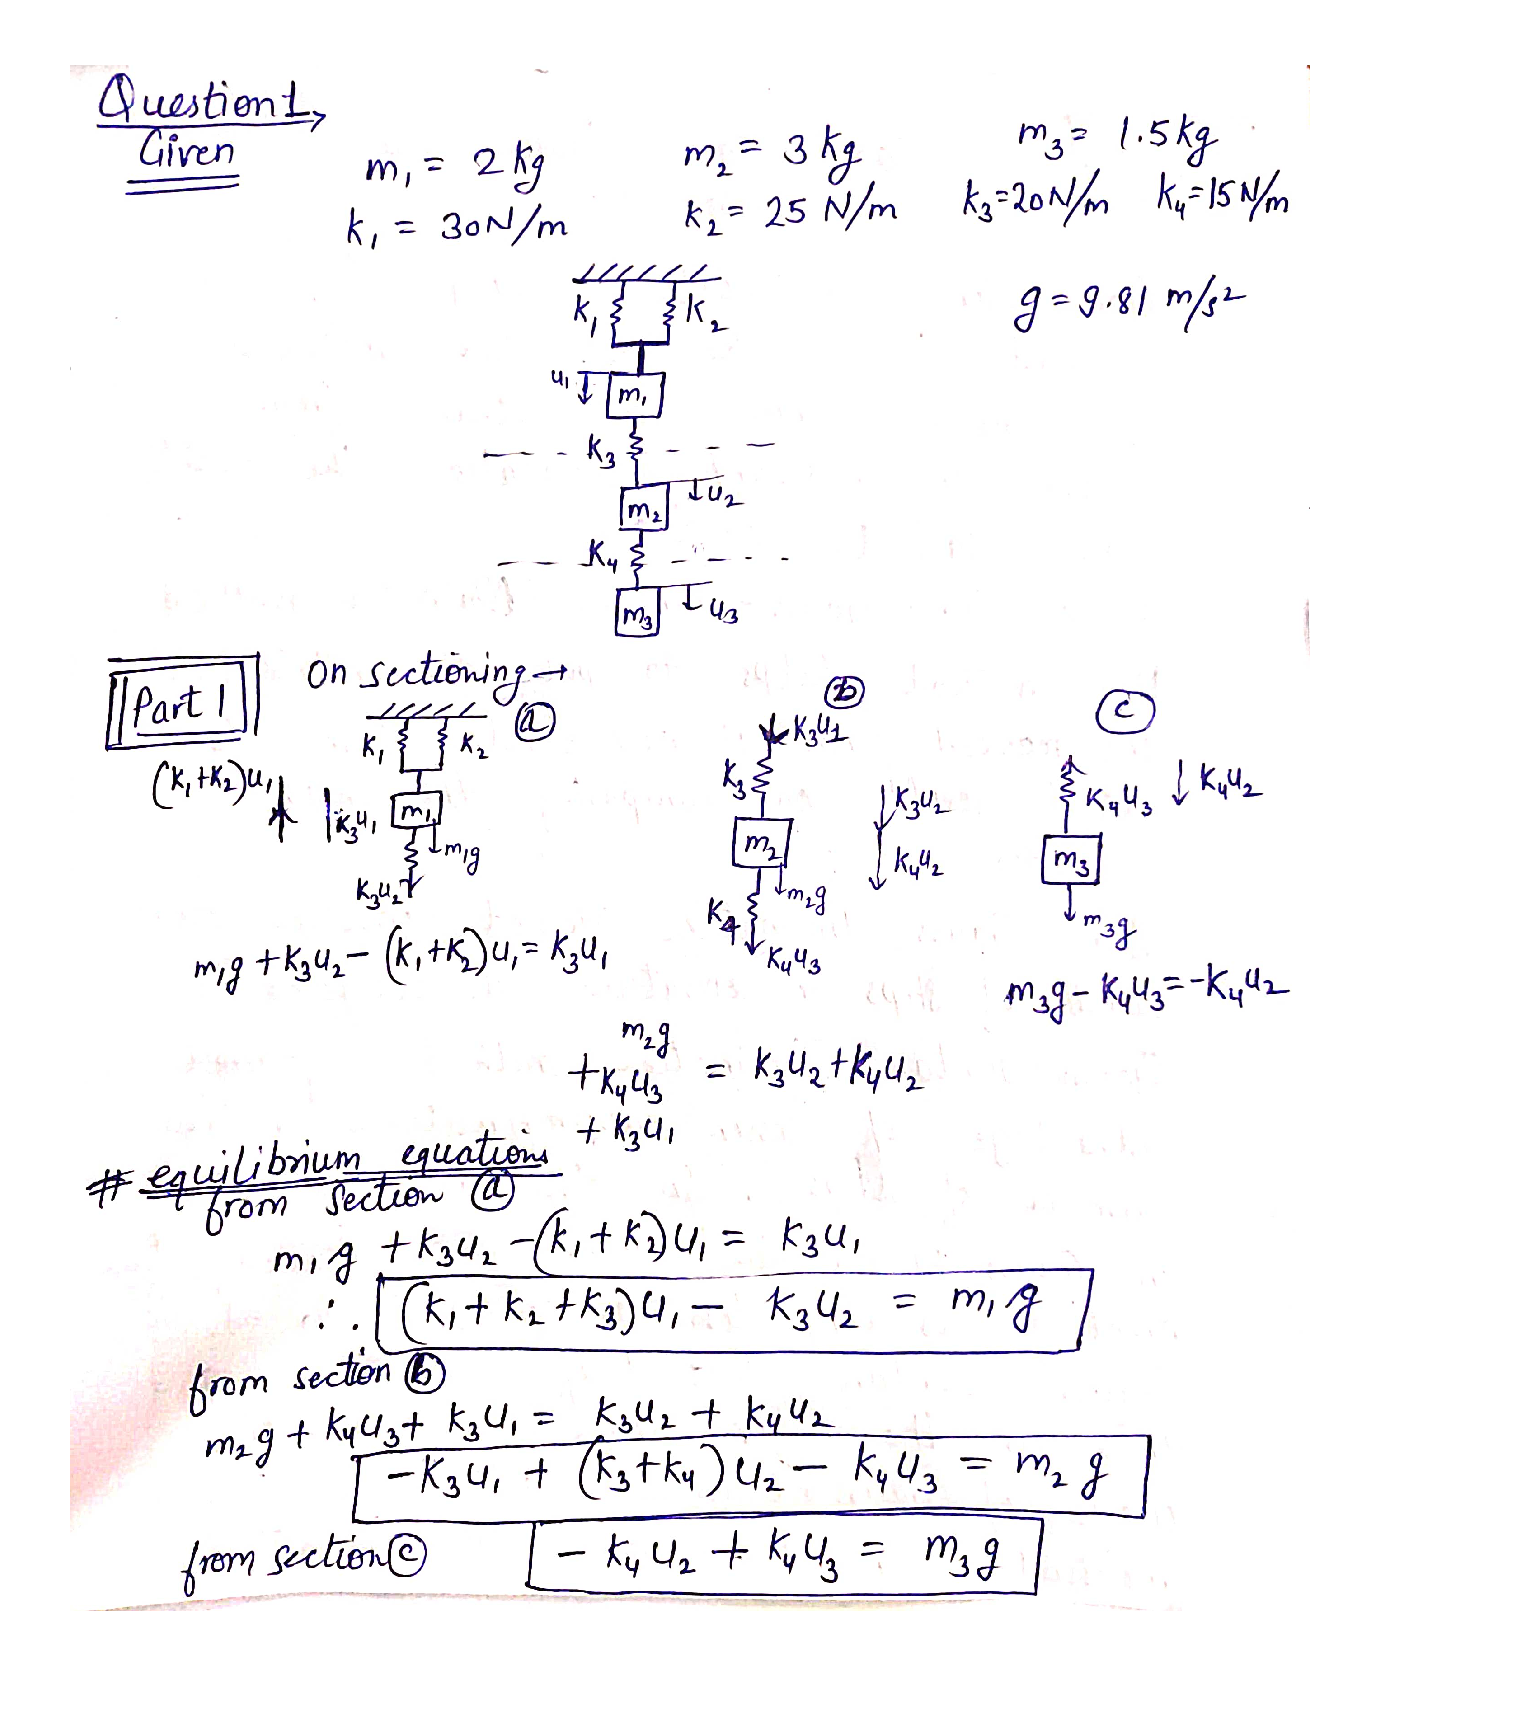 Question 1,
Given
m₁ = 2 kg m₂ = 3 kg m₃ = 1.5 kg
k₁ = 30 N/m k₂ = 25 N/m k₃=20 N/m k₄=15 N/m
g = 9.81 m/s²
k₁ k₂
u₁ m₁
k₃
m₂ u₂
k₄
m₃ u₃
Part 1 On sectioning →
ⓐ ⓑ ⓒ
k₁ k₂
(k₁+k₂)u₁ k₃u₁ m₁ m₁g
k₃u₂
k₃u₁
k₃ k₃u₂
m₂ k₄u₂
m₂g
k₄ k₄u₃
k₄u₃ k₄u₂
m₃
m₃g
m₁g + k₃u₂ - (k₁+k₂)u₁ = k₃u₁
m₃g - k₄u₃ = -k₄u₂
m₂g
+k₄u₃ = k₃u₂ + k₄u₂
+ k₃u₁
# equilibrium equations
from section ⓐ
m₁g + k₃u₂ - (k₁+k₂)u₁ = k₃u₁
∴ (k₁+k₂+k₃)u₁ - k₃u₂ = m₁g
from section ⓑ
m₂g + k₄u₃ + k₃u₁ = k₃u₂ + k₄u₂
-k₃u₁ + (k₃+k₄)u₂ - k₄u₃ = m₂g
from section ⓒ - k₄u₂ + k₄u₃ = m₃g